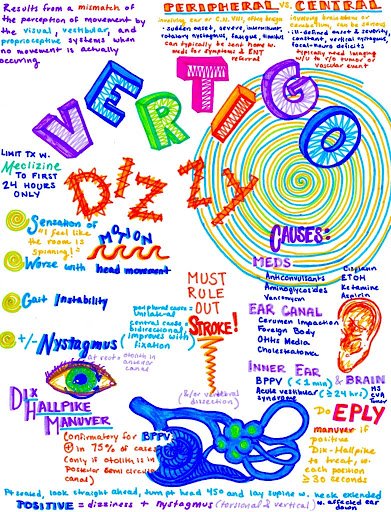 Results from a mismatch of
the perception of movement by
the visual, vestibular, and
proprioceptive systems when
no movement is actually
occurring
PERIPHERAL vs. CENTRAL
involving ear or C.N. VIII, often benign
• sudden onset, severe, intermittent,
rotatory nystagmus, fatigue,
can typically be sent home w.
meds for symptoms & ENT
referral
involving brainstem or
cerebellum, can be serious
• ill-defined onset & severity,
constant, vertical nystagmus,
focal-neuro deficits
typically need imaging
w/u to r/o tumor or
vascular event
VERTIGO
DIZZY
LIMIT TX W.
Meclizine
TO FIRST
24 HOURS
ONLY
Sensation of
"I feel like
the room is
spinning!"
MOTION
Worse with head movement
Gait Instability
+/- Nystagmus
peripheral cases =
unilateral
central cause =
bidirectional,
improves with
fixation
MUST
RULE
OUT
STROKE!
(&/or vertebral
dissection)
CAUSES:
MEDS
Anticonvulsants
Aminoglycosides
Vancomycin
Cisplatin
ETOH
Ketamine
Aspirin
EAR CANAL
Cerumen Impaction
Foreign Body
Otitis Media
Cholesteatoma
INNER EAR
BPPV (<1 min)
Acute vestibular (≥24 hrs)
syndrome
& BRAIN
HS
CVA
Tumor
DIX
HALLPIKE
MANUVER
(confirmatory for BPPV
⊕ in 75% of cases
(only if otolith is in
posterior semi circular
canal)
Do EPLY
manuver if
positive
Dix-Hallpike
to treat, w.
each position
≥ 30 seconds
Pt seated, look straight ahead, turn pt head 45° and lay supine w. neck extended
POSITIVE = dizziness + nystagmus (torsional & vertical) w. affected ear
down